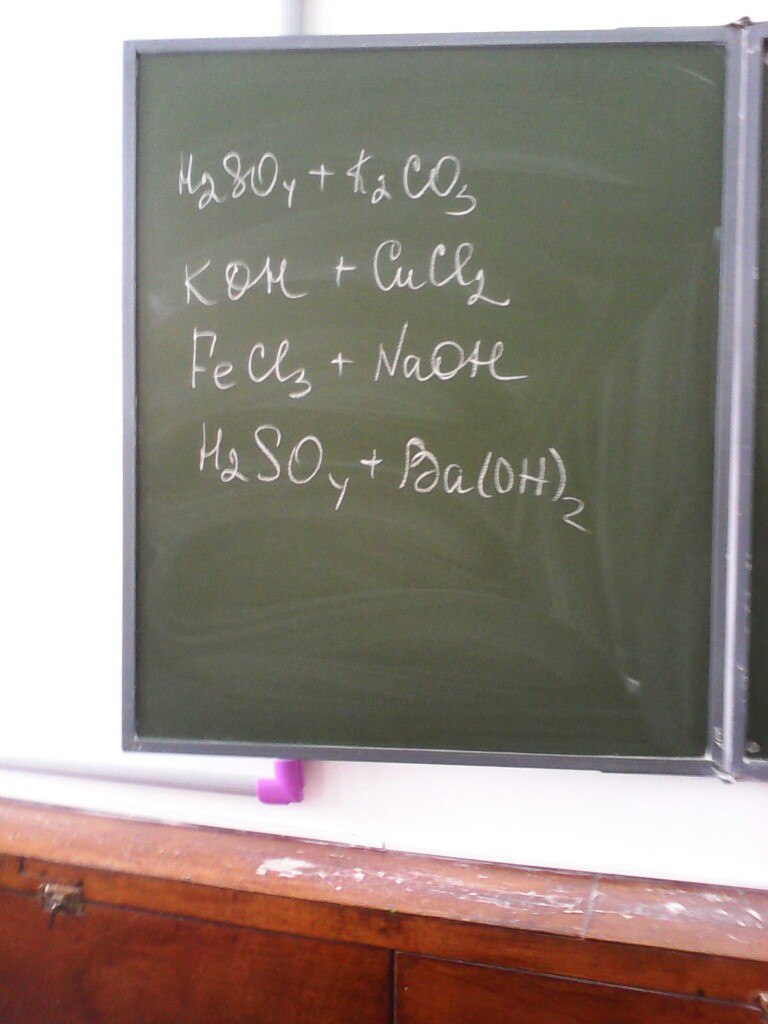 H₂SO₄ + K₂CO₃
KOH + CuCl₂
FeCl₃ + NaOH
H₂SO₄ + Ba(OH)₂